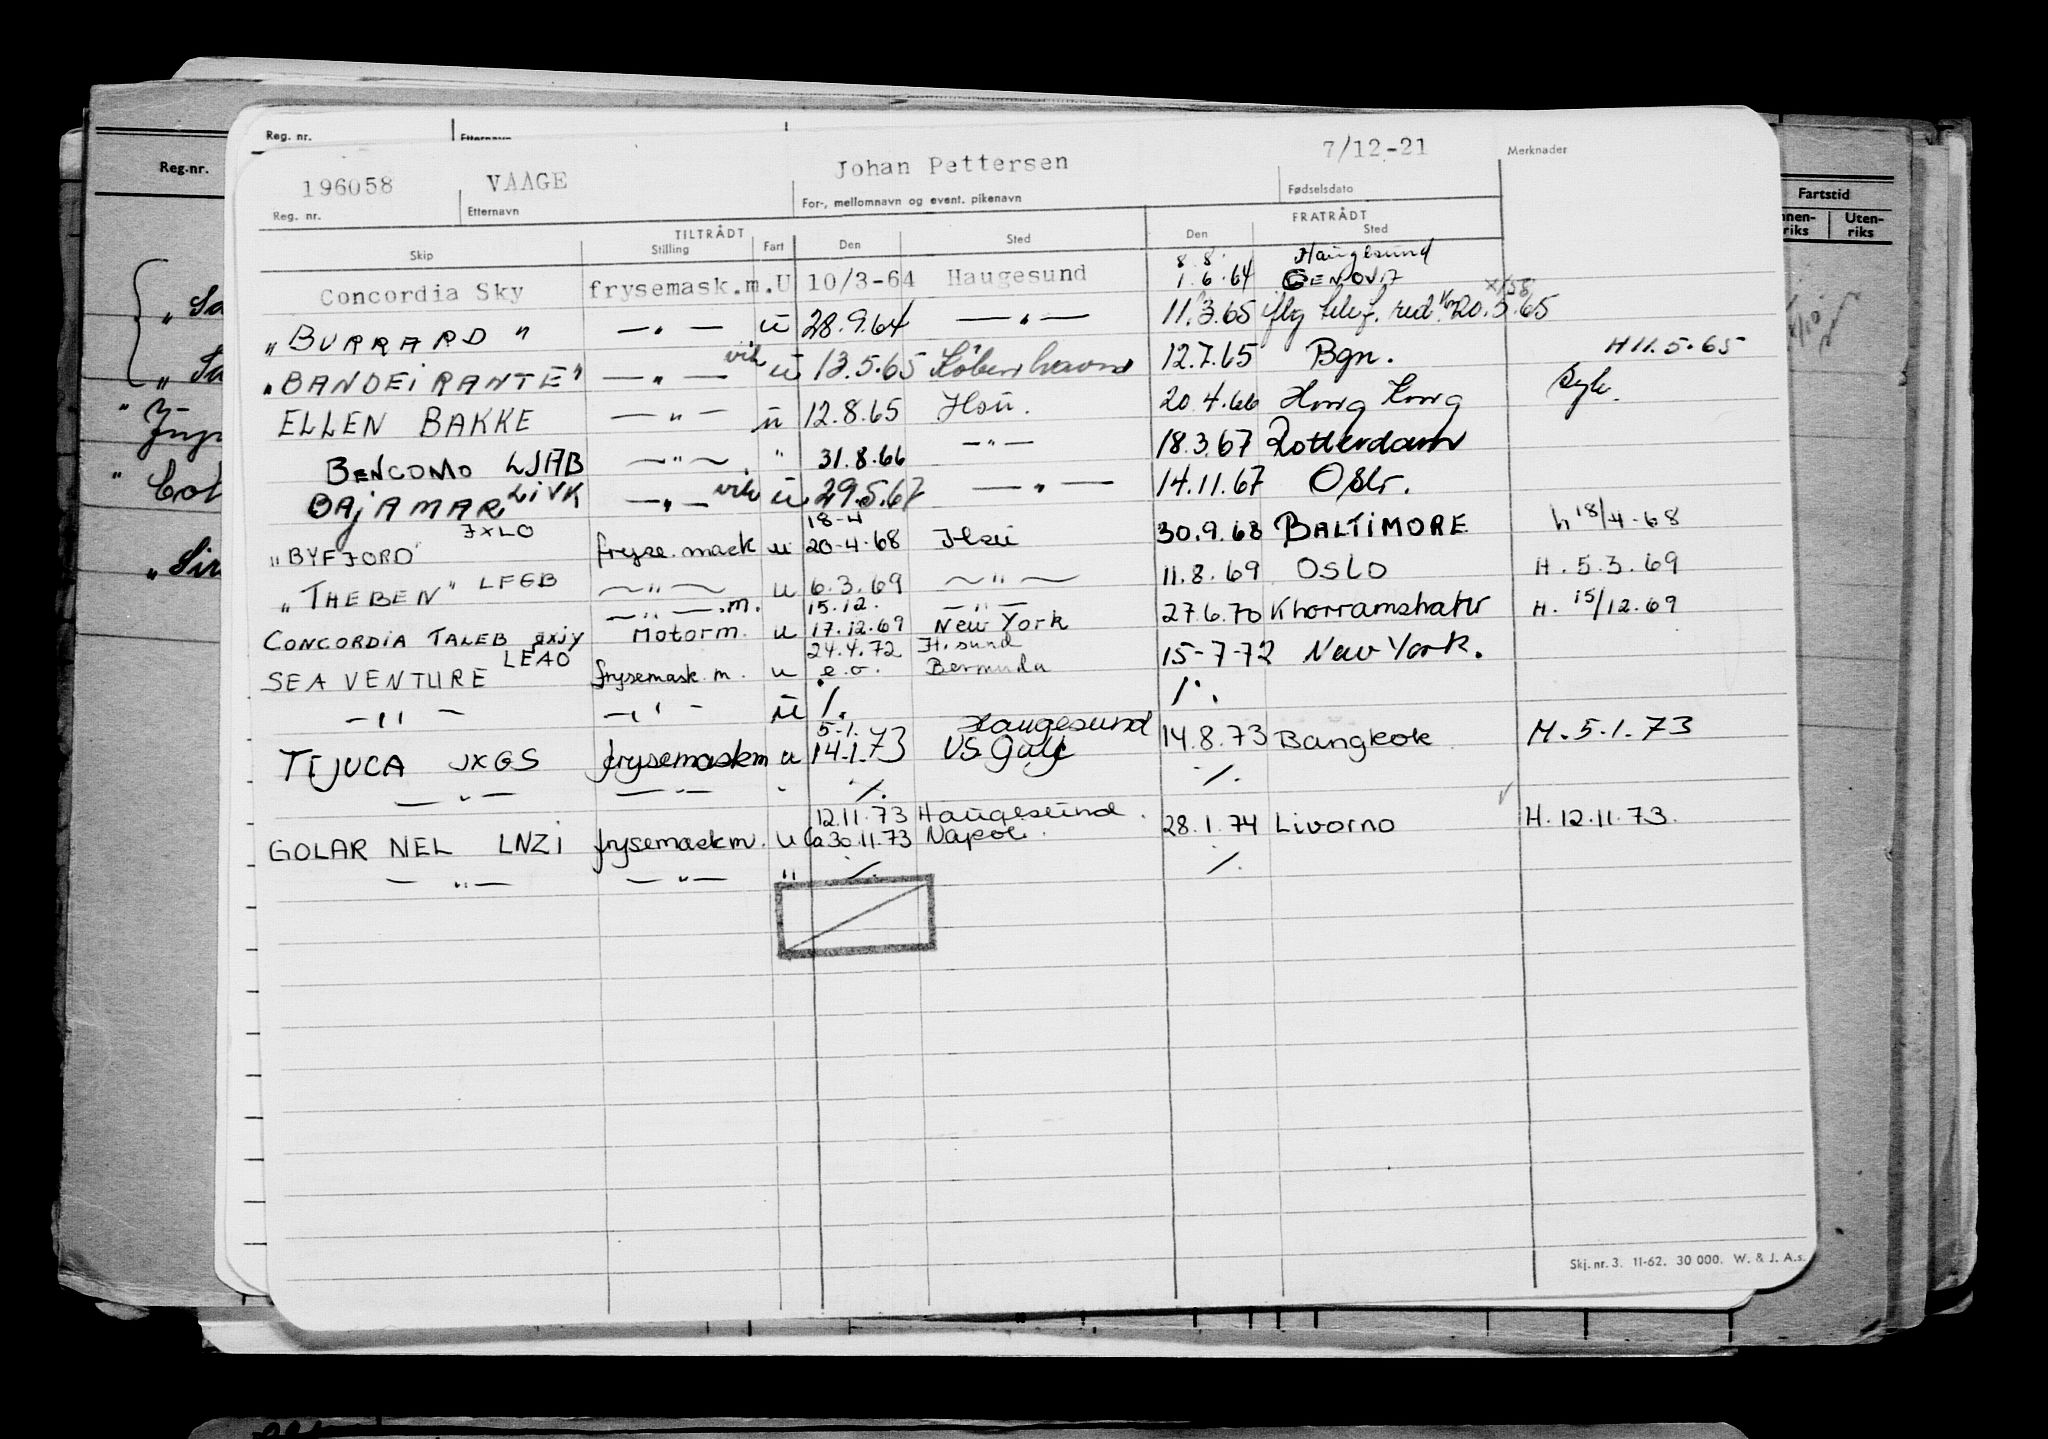 Reg. nr. Etternavn
Reg.nr.
196058 VAAGE Johan Pettersen 7/12-21 Merknader
Reg. nr. Etternavn For-, mellomnavn og event. pikenavn Fødselsdato
Fartstid
Uten-
riks
TILTRÅDT FRATRÅDT
Skip Stilling Fart Den Sted Den Sted
8.8. Haugesund
Concordia Sky frysemask.m. U 10/3-64 Haugesund 1.6.64 GENOVA
"BURRARD" — " — u 28.9.64 — " — 11.3.65 iflg telef. red. 20.5.65
"BANDEIRANTE" — " — vik u 13.5.65 København 12.7.65 Bgn. H 11.5.65
ELLEN BAKKE — " — u 12.8.65 Hsu. 20.4.66 Hong Kong Syk.
BENCOMO LJAB — " — " 31.8.66 — " — 18.3.67 Rotterdam
BAJAMAR LIVK — " — vik u 29.5.67 — " — 14.11.67 Oslo.
18-4
"BYFJORD" JXLO fryse.mask u 20-4-68 Hsu 30.9.68 BALTIMORE h 18/4-68
"THEBEN" LFGB — " — u 6.3.69 — " — 11.8.69 OSLO H. 5.3.69
— " — .m. 15.12. — " —
CONCORDIA TALEB JXIY Motorm. u 17.12.69 New York 27.6.70 Khorramshahr H. 15/12.69
24.4.72 H.sund
SEA VENTURE LEAO frysemask.m. u e.o. Bermuda 15-7-72 New York.
— " — — " — u ./. ./.
5.1. Haugesund
TIJUCA JXGS frysemaskm u 14.1.73 US Gulf 14.8.73 Bangkok H. 5.1.73
— " — — " — " ./. ./.
12.11.73 Haugesund.
GOLAR NEL LNZI frysemaskm. u Ca 30.11.73 Napoli. 28.1.74 Livorno H. 12.11.73.
— " — — " — " ./. ./.
Skj. nr. 3. 11-62. 30 000. W. & J. A.s.